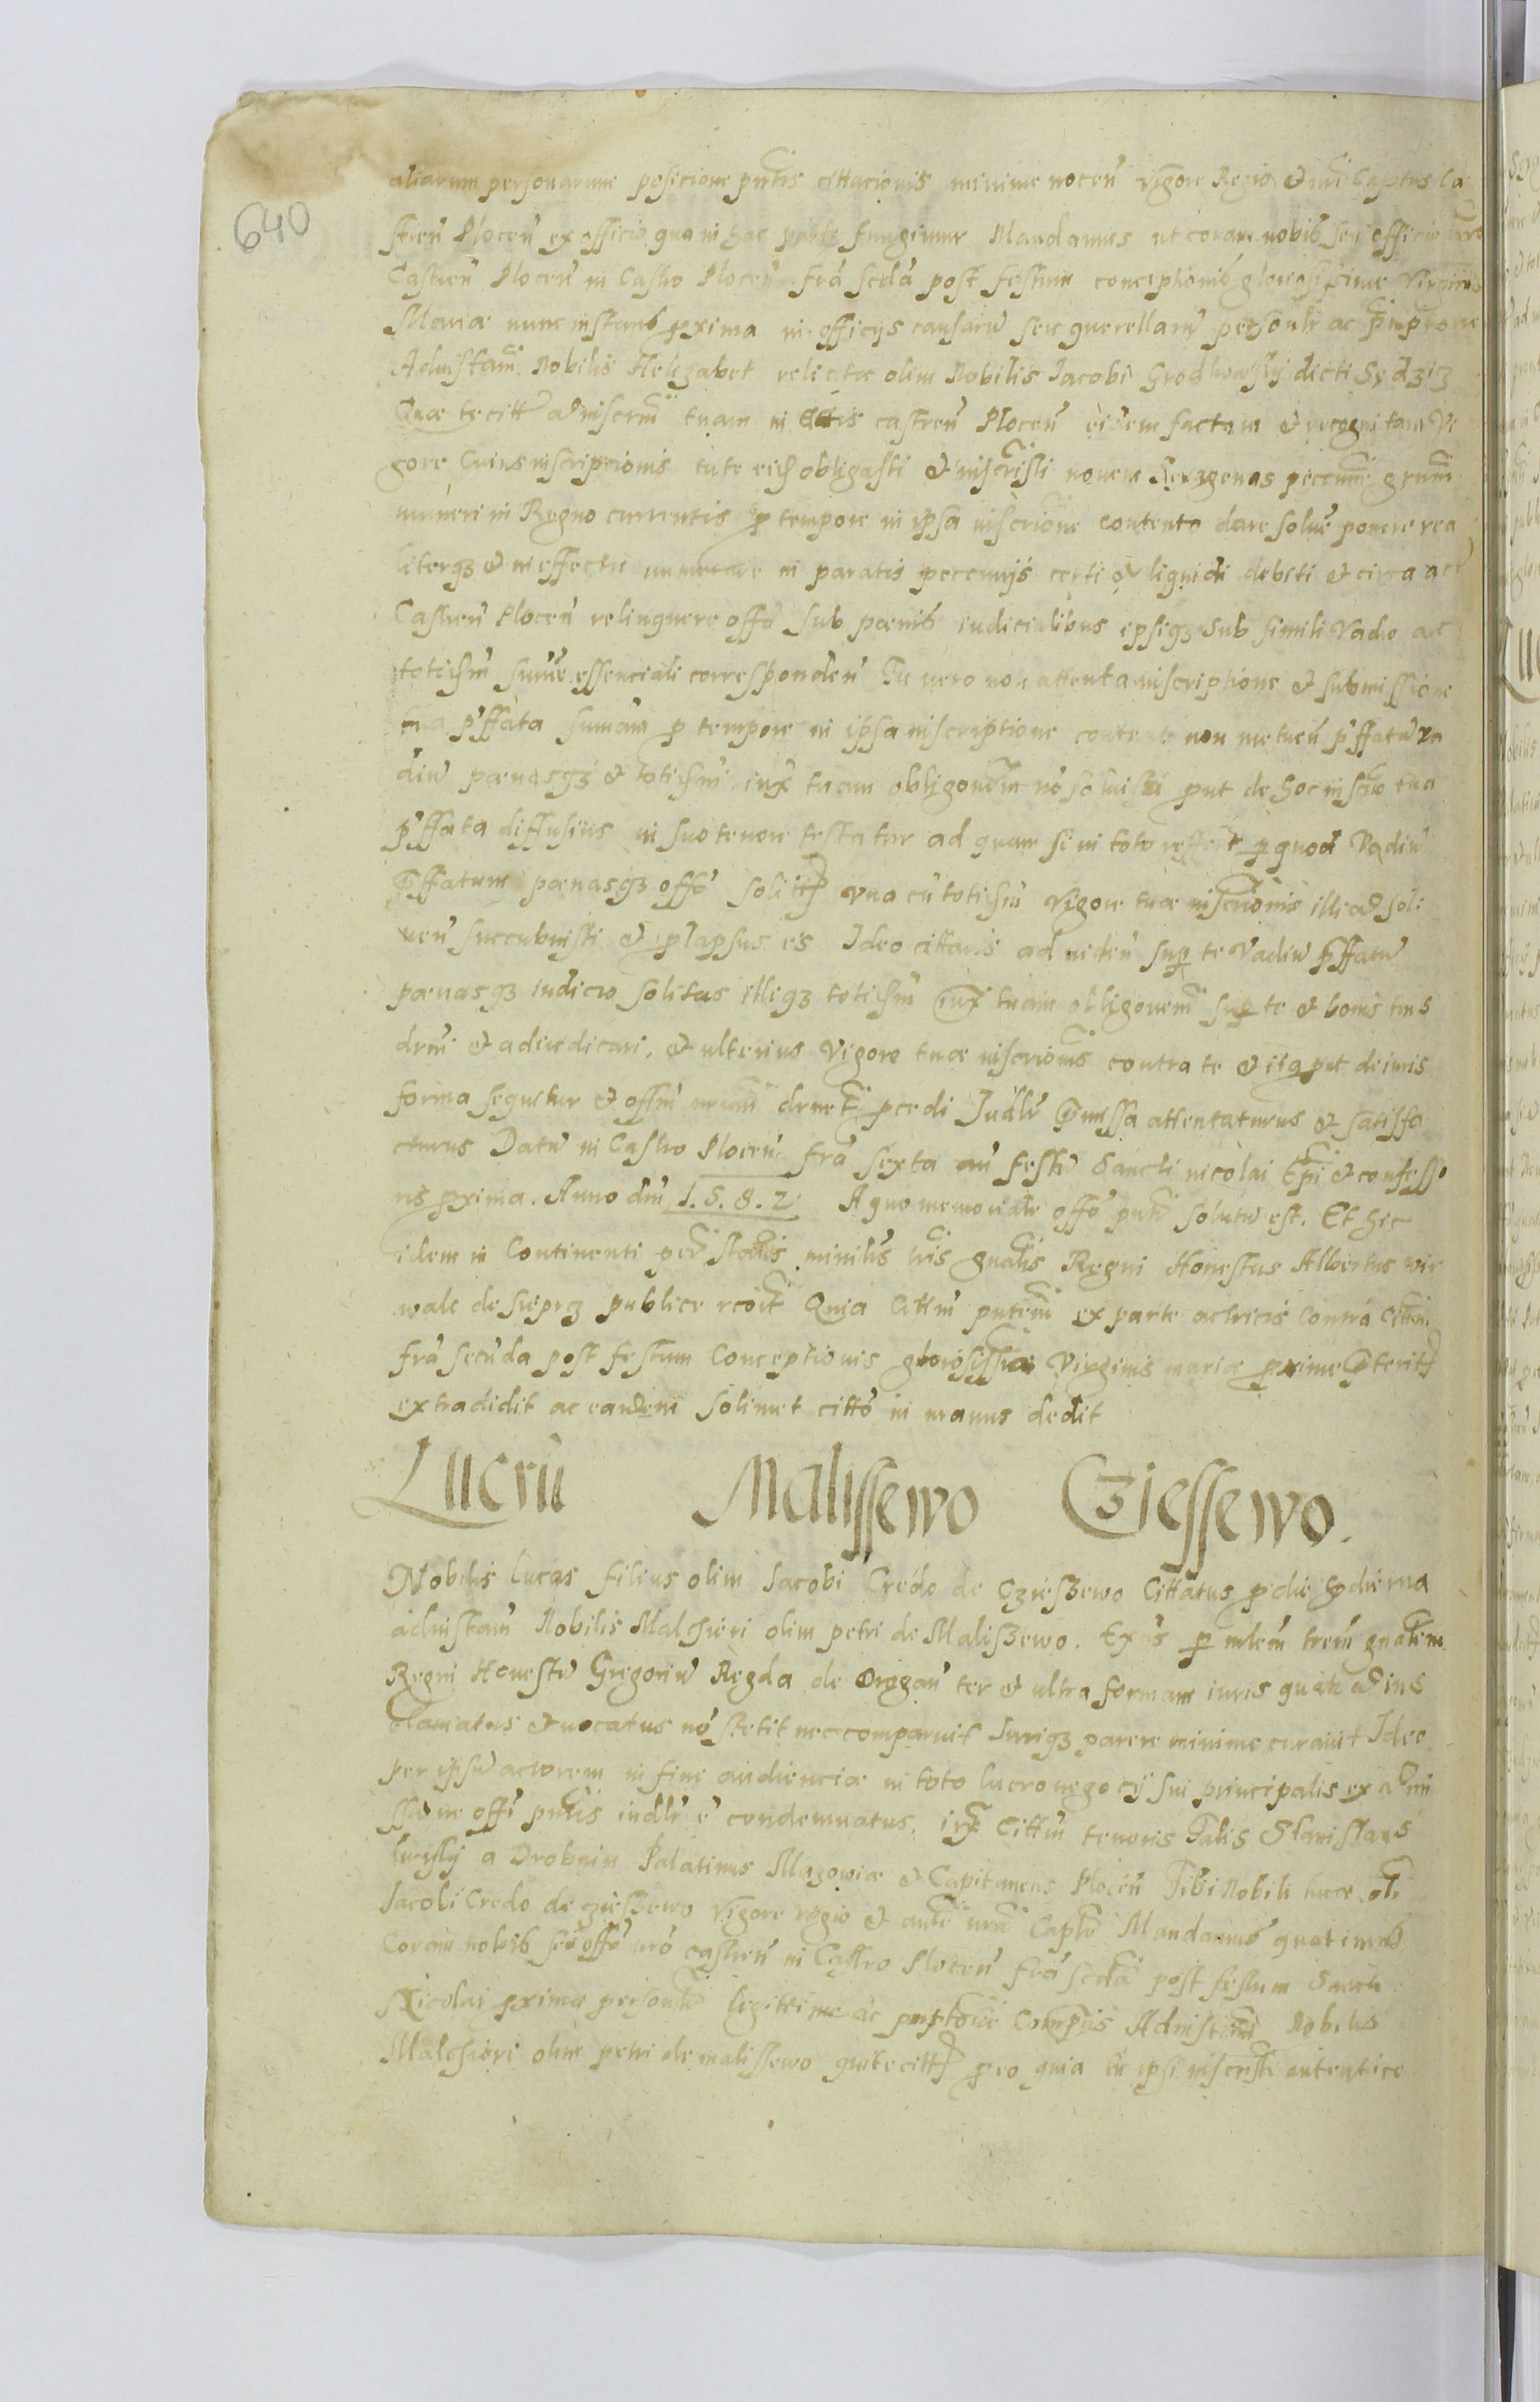 640
aliarum personarum posicione pntis cittacionis minime nocen vigore Regio & uri Captus Ca
stren Plocen ex officio qua in hac parte fungimur Mandamus ut coram nobis seu officio nro
Castren Plocen in Castro Plocen fra scda post festum conceptionis gloriosissime Virginis
Mariae nunc instans pxima in officys causaru seu querellaru personlr ac pmptorie
Ad instam Nobilis Helizabet relictae olim Nobilis Iacobi Grodkowsky dicti Sydziz
Quae te citt ad inscrm tuam in Ettis castren Plocen eidem factam & recognitam Vi
gore Cuius inscripcionis tute eisd obligasti & inscristi novem sexagenas peccunie grum
numeri in Regno currentis p tempore in ipsa inscrione contento dare solve ponere rea
literq3 & in effectu numerare in paratis peccunijs certi & liquidi debiti & circa act
Castren Plocen relinquere offo sub poenis iudicialibus ipsiq3 sub simili Vadio ac
totidem sume essenciali corresponden Tu vero non attenta inscriptione & submissione
tua pffata sumam p tempore in ipsa inscriptione contento non metuen pffatu va
diu poenasq3 & totidem iux tuam obligonem no solvisti put de hoc inscrio tua
pffata diffusius in suo tenore testatur ad quam se in toto reffert p quod Vadiu
pffatum poenasq3 offo solitt una cu totidem vigore tuae inscrionis illi ad sol:
ven succubuisti & plapsus es Ideo cittaris ad viden sup te Vadiu pffatu
poenasq3 iudicio solitas illiq3 totidem iux tuam obligonem sup te & bonis tuis
drni & adiudicari, & ulterius Vigore tuae inscrionis contra te & ita put de iuris
forma sequetur & offm nrum drnet pcedi Iudlr pmissa attentaturus & satisfa
cturus Datu in Castro Plocen fra sexta an festu Sancti nicolai Epi & confesso
ris pxima. Anno dni 1.5.8.2 A quo memoriale offo pnti solutu est. Et hic
idem in Continenti per stans minilis tris gnalis Regni Honestus Albertus wir
wale de sieprz publice rcoit Quia Cittm pntem ex parte actricis contra Cittm
fra secunda post festum Conceptionis gloriosissiae Virginis mariae pxime pterit
extradidit ac eandem solimet citto in manus dedit
Lucru Malissewo Cziessewo.
Nobilis Lucas filius olim Iacobi Credo de Czieszewo Cittatus p die hodierna
ad instam Nobilis Malchieri olim petri de Maliszewo. Ex is p mlem trem gnalem
Regni Honestu Gregoriu Regda de Drogan ter & ultra formam iuris quatr ad ius
clamatus & vocatus no stetit nec comparuit Iuriq3 parere minime curavit Ideo
per ipsu actorem in fine audienciae in toto lucro negocij sui principalis ex admi
ssione offi pntis iudlr e condemnatus. iux Cittm tenoris talis Stanislaus
kryski a Drobnin Palatinus Mazowiae & Capitaneus Plocen Tibi Nobili Lucae olim
Iacobi Credo de czieszewo Vigore regio & aucte nra Captli Mandamus quatinus
Coram nobis seu offo nro castren in Castro Plocen fra scda post festum Sancti
Nicolai pxime personlr legittime ac pmptorie Compis Ad instam Nobilis
Malchieri olim petri de malissewo qui te citt p eo quia tu ipsi inscristi autentice